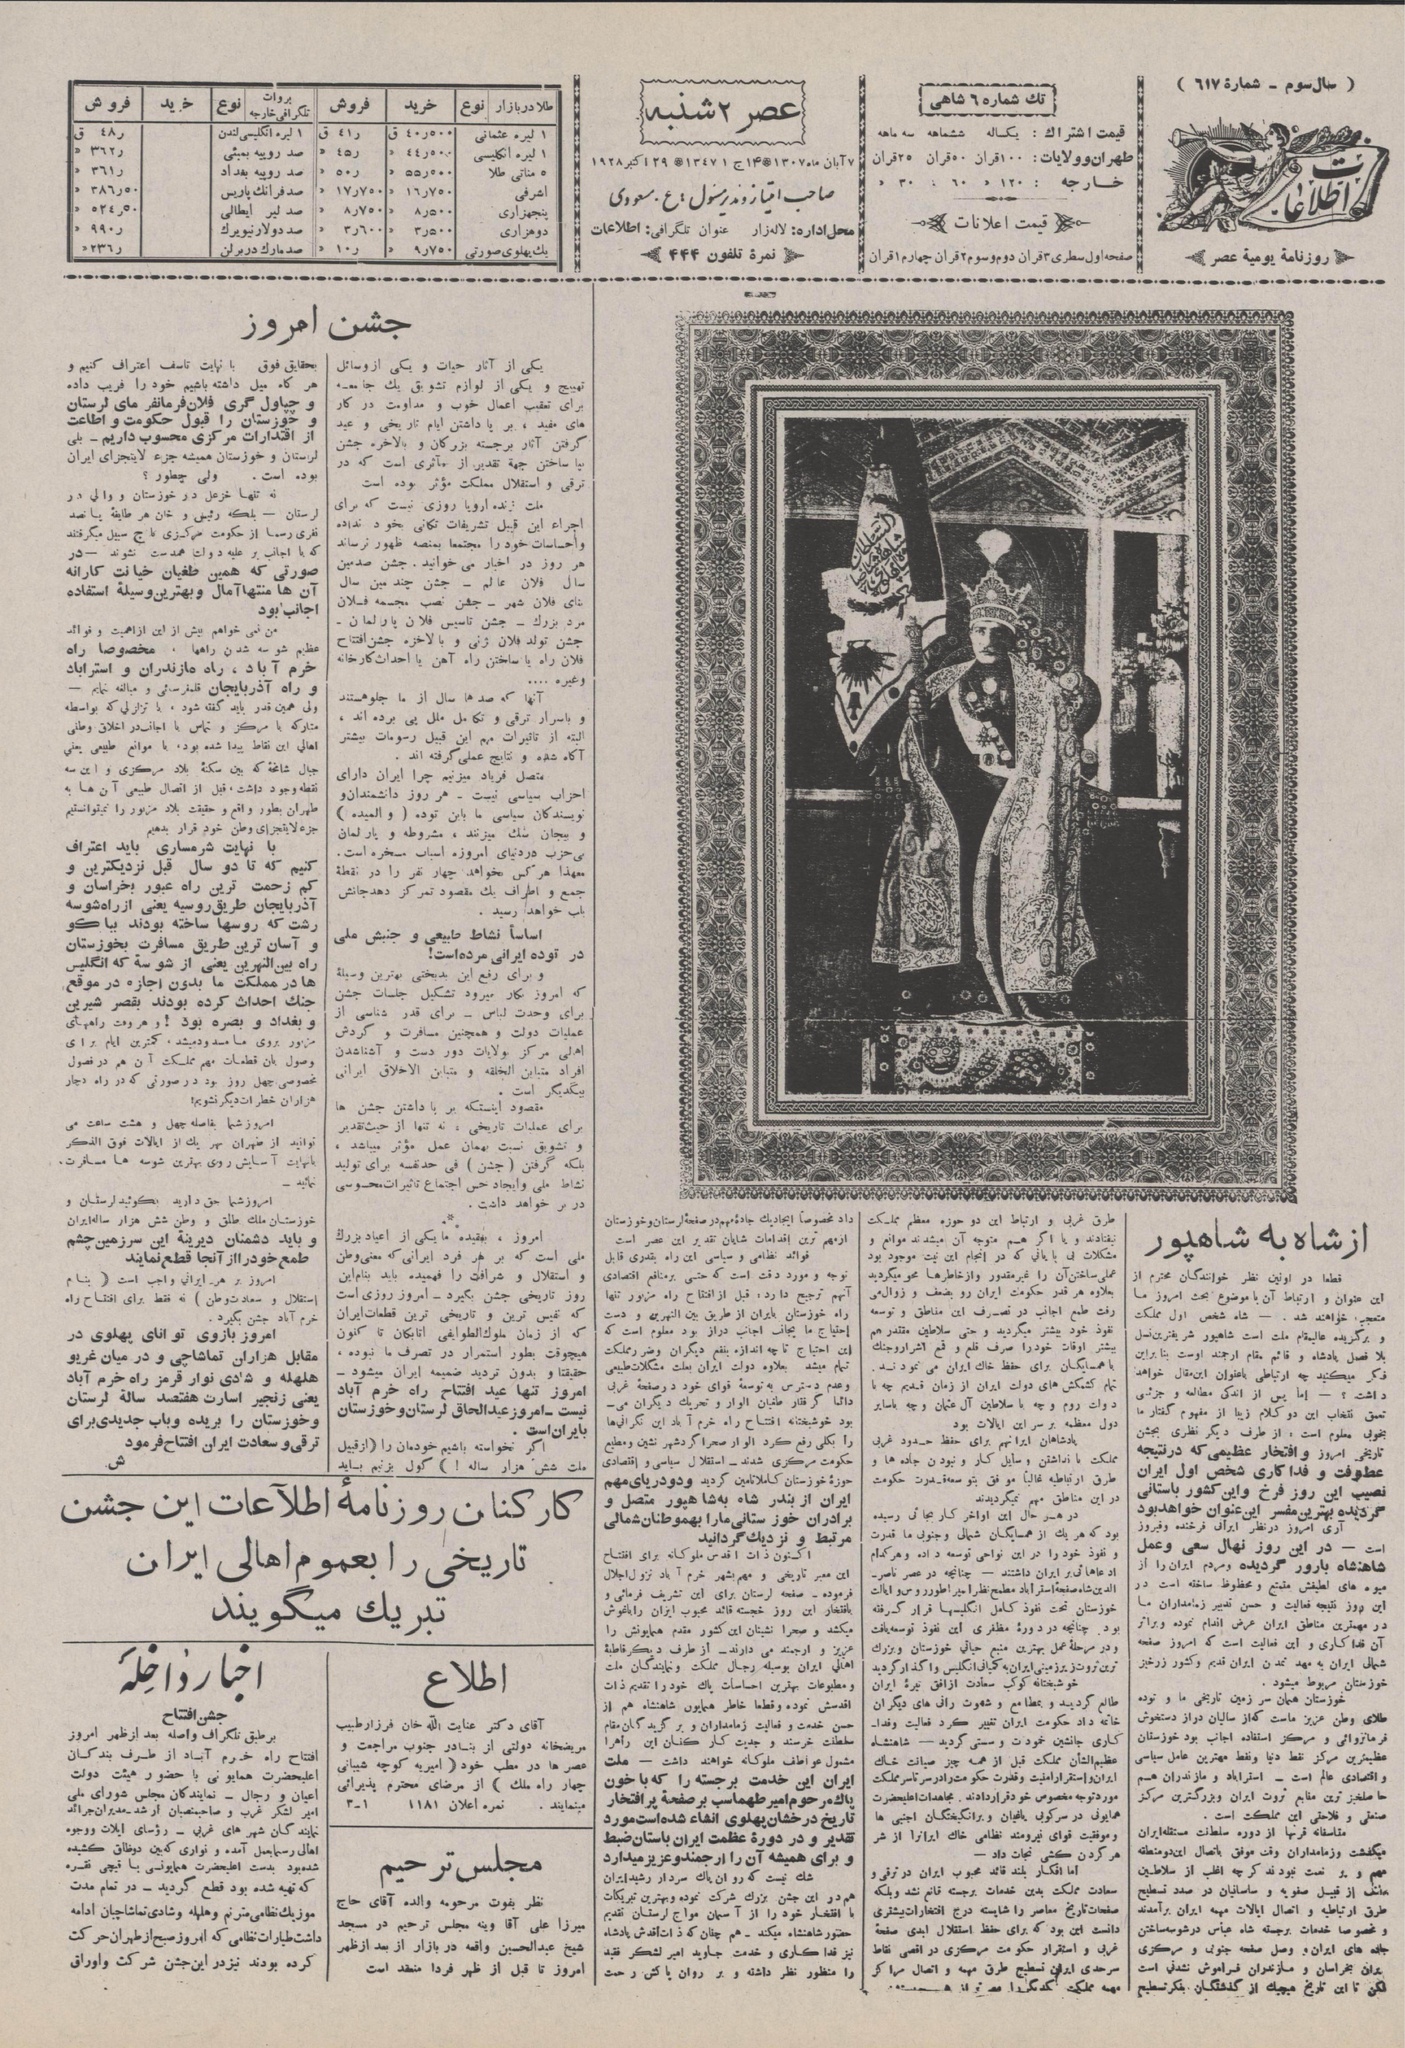 ( سال سوم ـ شمارهٔ ۶۱۷ )
اطلاعات
روزنامهٔ یومیهٔ عصر
تك شماره ۶ شاهی
قیمت اشتراك : یكساله ششماهه سه ماهه
طهران وولایات : ۱۰۰قران ۵۰ قران ۲۵ قران
خـارجـه : ۱۲۰ » ۶۰ : ۳۰ »
قیمت اعلانات
صفحه اول سطری ۳ قران دوم و سوم ۲ قران چهارم ۱ قران
عصر ۲ شنبه
۷ آبان ماه ۱۳۰۷ * ۱۴ ج ۱ ۱۳۴۷ * ۲۹ اكتبر ۱۹۲۸
صاحب امتیاز و مدیر مسئول : ع . مسعودی
محل اداره: لاله‌زار عنوان تلگرافی: اطلاعات
نمرهٔ تلفون ۴۴۴
طلا در بازار نوع خرید فروش
۱ لیره عثمانی
۱ لیره انگلیسی
۵ مناتی طلا
اشرفی
پنجهزاری
دوهزاری
یك پهلوی صورتی
بروات تلگرافی خارجه نوع خرید فروش
۱ لیره انگلیسی لندن
صد روپیه بمبئی
صد روپیه بغداد
صد فرانك پاریس
صد لیر ایطالی
صد دولار نیویرك
صد مارك در برلن
از شاه به شاهپور
قطعا در اولین نظر خوانندگان محترم از
این عنوان و ارتباط آن با موضوع بحث امروز ما
متعجب خواهند شد . ـ شاه شخص اول مملكت
و برگزیده عالیمقام ملت است شاهپور شریفترین نسل
بلا فصل پادشاه و قائم مقام ارجمند اوست بنابراین
فكر میكنید چه ارتباطی باعنوان این مقال خواهد
داشت ؟ ـ اما پس از اندكی مطالعه و جزئی
تعمق انتخاب این دو كلام زیبا از مفهوم گفتار ما
بخوبی معلوم است ، از طرف دیگر نظری بجشن
تاریخی امروز و افتخار عظیمی كه درنتیجه
عطوفت و فداكاری شخص اول ایران
نصیب این روز فرخ و این كشور باستانی
گردیده بهترین مفسر این عنوان خواهد بود
آری امروز درنظر ایرانی فرخنده وفیروز
است ـ در این روز نهال سعی و عمل
شاهنشاه بارور گردیده ومردم ایران را از
میوه های لطیفش متمتع و محظوظ ساخته است در
این روز نتیجه فعالیت و حسن تدبیر زمامداران ما
در مهمترین مناطق ایران عرض اندام نموده وبراثر
آن فداكاری و این فعالیت است كه امروز صفحه
شمالی ایران به مهد تمدن ایران قدیم وكشور زرخیز
خوزستان مربوط میشود .
خوزستان همان سر زمین تاریخی ما و توده
طلای وطن عزیز ماست كه از سالیان دراز دستخوش
فرمانروائی و مركز استفاده اجانب بود خوزستان
عظیمترین مركز نفط دنیا ونقطه مهمترین عامل سیاسی
و اقتصادی عالم است ـ استراباد و مازندران هم
حاصلخیز ترین منابع ثروت ایران وبزرگترین مركز
صنعتی و فلاحتی این مملكت است .
متاسفانه قرنها از دوره سلطنت مستقله ایران
میگذشت وزمامداران وقت موفق باتصال این دومنطقه
مهم و پر نعمت نبودند گر چه اغلب از سلاطین
از قبیل صفویه و ساسانیان در صدد تسطیح
طرق ارتباطیه و اتصال ایالات مهمه ایران برآمدند
و مخصوصا خدمات برجسته شاه عباس در شوسه ساختن
جاده های ایران و وصل صفحه جنوبی و مركزی
ایران بخراسان و مازندران فراموش نشدنی است
لكن تا این تاریخ هیچیك از گذشتگان بفكر تسطیح
طرق غربی و ارتباط این دو حوزه معظم مملكت
نیفتادند و یا اگر هم متوجه آن میشدند موانع و
مشكلات بی پایانی كه در انجام این نیت موجود بود
عملی ساختن آن را غیرمقدور وازخاطرها محو میگردید
بعلاوه هر قدر حكومت ایران رو بضعف و زوال می
رفت طمع اجانب در تصرف این مناطق و توسعه
نفوذ خود بیشتر میگردید و حتی سلاطین مقتدر هم
بیشتر اوقات خود را صرف قلع و قمع اشرار و جنك
با همسایگان برای حفظ خاك ایران می نمودند .
تمام كشمكش های دولت ایران از زمان قدیم چه با
دولت روم و چه با سلاطین آل عثمان و چه باسایر
دول معظمه بر سر این ایالات بود
پادشاهان ایرانهم برای حفظ حدود غربی
مملكت با نداشتن وسایل كار و نبودن جاده ها و
طرق ارتباطیه غالبا موفق بتوسعه قدرت حكومت
در این مناطق مهم نمیگردیدند
در هر حال این اواخر كار بجائی رسیده
بود كه هر یك از همسایگان شمالی وجنوبی ما قدرت
و نفوذ خود را در این نواحی توسعه داده وهركدام
ادعاهائی بر ایران داشتند ـ چنانچه در عصر ناصر-
الدین شاه صفحهٔ استراباد مطمح نظر امپراطور روس و ایالت
خوزستان تحت نفوذ كامل انگلیسها قرار گرفته
بود . چنانچه در دوره مظفری این نفوذ توسعه یافت
و در مرحلهٔ عمل بهترین منبع حیاتی خوزستان وبزرك
ترین ثروت زیرزمینی ایران به كمپانی انگلیس واگذار گردید
خوشبختانه كوكب سعادت ازافق تیرهٔ ایران
طالع گردید و بمطامع و شهوت رانی های دیگران
خاتمه داد حكومت ایران تغییر كرد فعالیت وفدا-
كاری جانشین خمودت و سستی گردید ـ شاهنشاه
عظیم الشان مملكت قبل از همه چیز صیانت خاك
ایران و استقرار امنیت و قدرت حكومت را در سرتاسر مملكت
مورد توجه مخصوص خود قراردادند . مجاهدات اعلیحضرت
همایونی در سركوبی یاغیان و برانگیختگان اجنبی ها
و موفقیت قوای نیرومند نظامی خاك ایرانرا از شر
هر گردن كشی نجات داد ـ
اما افكار بلند قائد محبوب ایران در ترقی و
سعادت مملكت بدین خدمات برجسته قانع نشد وبلكه
صفحات تاریخ معاصر را شایسته درج افتخارات بیشتری
دانست این بود كه برای حفظ استقلال ابدی صفحهٔ
غربی و استقرار حكومت مركزی در اقصی نقاط
سرحدی ایران تسطیح طرق مهمه و اتصال مراكز
داد مخصوصاً ایجاد یك جاده مهم در صفحهٔ لرستان و خوزستان
ازمهم ترین اقدامات شایان تقدیر این عصر است
فوائد نظامی و سیاسی این راه بقدری قابل
توجه و مورد دقت است كه حتی برمنافع اقتصادی
آنهم ترجیح دارد ، قبل از افتتاح راه مزبور تنها
راه خوزستان بایران از طریق بین النهرین و دست
احتیاج ما بجانب اجانب دراز بود معلوم است كه
این احتیاج تا چه اندازه بنفع دیگران وضرر مملكت
تمام میشد . بعلاوه دولت ایران بعلت مشكلات طبیعی
وعدم دسترس به توسعهٔ قوای خود درصفحهٔ غربی
دائما گرفتار طغیان الوار و تحریك دیگران می-
بود خوشبختانه افتتاح راه خرم آباد این نگرانی ها
را بكلی رفع كرد الوار صحراگرد شهر نشین و مطیع
حكومت مركزی شدند ـ استقلال سیاسی و اقتصادی
حوزهٔ خوزستان كاملا تامین گردید ودو دریای مهم
ایران از بندر شاه به شاهپور متصل و
برادران خوزستانی مارا بهموطنان شمالی
مرتبط و نزدیك گردانید
اكنون ذات اقدس ملوكانه برای افتتاح
این معبر تاریخی و مهم بشهر خرم آباد نزول اجلال
فرموده ـ صفحه لرستان برای این تشریف فرمائی و
بافتخار این روز خجسته قائد محبوب ایران را باغوش
میكشد و صحرا نشینان این كشور مقدم همایونش را
عزیز و ارجمند می دارند ـ از طرف دیگر قاطبهٔ
اهالی ایران بوسیله رجال مملكت و نمایندگان ملت
و مطبوعات بهترین احساسات پاك خود را تقدیم ذات
اقدسش نموده و قطعا خاطر همایون شاهنشاه هم از
حسن خدمت و فعالیت زمامداران و برگزیدگان مقام
سلطنت خرسند و جدیت كاركنان این راهرا
مشمول عواطف ملوكانه خواهند داشت ـ ملت
ایران این خدمت برجسته را كه با خون
پاك مرحوم امیر طهماسب بر صفحهٔ پر افتخار
تاریخ درخشان پهلوی انشاء شده است مورد
تقدیر و در دورهٔ عظمت ایران باستان ضبط
و برای همیشه آن را ارجمند و عزیز میدارد
شك نیست كه روان پاك سردار رشید ایران
هم در این جشن بزرك شركت نموده و بهترین تبریكات
با افتخار خود را از آسمان مواج لرستان تقدیم
حضور شاهنشاه میكند ـ هم چنان كه ذات اقدس پادشاه
نیز فداكاری و خدمت جاوید امیر لشكر فقید
را منظور نظر داشته و بر روان پاكش رحمت
جشن امروز
یكی از آثار حیات و یكی ازوسائل
تهییج و یكی از لوازم تشویق یك جامعه
برای تعقیب اعمال خوب و مداومت در كار
های مفید ، بر پا داشتن ایام تاریخی و عید
گرفتن آثار برجسته بزرگان و بالاخره جشن
بپا ساختن جهة تقدیر از مآثری است كه در
ترقی و استقلال مملكت مؤثر بوده است
ملت زنده اروپا روزی نیست كه برای
اجراء این قبیل تشریفات تكانی بخود نداده
واحساسات خود را مجتمعا بمنصه ظهور نرساند
هر روز در اخبار می خوانید . جشن صدمین
سال فلان عالم ـ جشن چندمین سال
بنای فلان شهر ـ جشن نصب مجسمه فلان
مرد بزرك ـ جشن تاسیس فلان پارلمان ـ
جشن تولد فلان ژنی و بالاخره جشن افتتاح
فلان راه یا ساختن راه آهن یا احداث كارخانه
وغیره ....
آنها كه صدها سال از ما جلو هستند
و باسرار ترقی و تكامل ملل پی برده اند ،
البته از تاثیرات مهم این قبیل رسومات بیشتر
آگاه شده و نتایج عملی گرفته اند .
متصل فریاد میزنیم چرا ایران دارای
احزاب سیاسی نیست ـ هر روز دانشمندان و
نویسندگان سیاسی ما باین توده ( والمیده )
و بیجان سك میزنند ، مشروطه و پارلمان
بی حزب در دنیای امروزه اسباب مسخره است.
معهذا هر كس بخواهد چهار نفر را در نقطهٔ
جمع و اطراف یك مقصود تمركز دهد جانش
بلب خواهد رسید .
اساساً نشاط طبیعی و جنبش ملی
در توده ایرانی مرده است!
و برای رفع این بدبختی بهترین وسیلهٔ
كه امروز بكار میرود تشكیل جلسات جشن
برای وحدت لباس ـ برای قدر شناسی از
عملیات دولت و همچنین مسافرت و گردش
اهالی مركز بولایات دور دست و آشناشدن
افراد متباین الخلقه و متباین الاخلاق ایرانی
بیكدیگر است .
مقصود اینستكه بر پا داشتن جشن ها
برای عملیات تاریخی ، نه تنها از حیث تقدیر
و تشویق نسبت بهمان عمل مؤثر میباشد ،
بلكه گرفتن ( جشن ) فی حدنفسه برای تولید
نشاط ملی وایجاد حس اجتماع تاثیرات محسوسی
در بر خواهد داشت .
***
امروز ، بعقیده ما یكی از اعیاد بزرك
ملی است كه بر هر فرد ایرانی كه معنی وطن
و استقلال و شرافت را فهمیده باید بنام این
روز تاریخی جشن بگیرد ـ امروز روزی است
كه نفیس ترین و تاریخی ترین قطعات ایران
كه از زمان ملوك الطوایفی اتابكان تا كنون
هیچوقت بطور استمرار در تصرف ما نبوده ،
حقیقتا و بدون تردید ضمیمه ایران میشود ـ
امروز تنها عید افتتاح راه خرم آباد
نیست ـ امروز عید الحاق لرستان و خوزستان
بایران است .
اگر نخواسته باشیم خودمان را (ازقبیل
ملت شش هزار ساله ! ) گول بزنیم باید
بحقایق فوق با نهایت تاسف اعتراف كنیم و
هر گاه میل داشته باشیم خود را فریب داده
و چپاول گری فلان فرمانفرمای لرستان
و خوزستان را قبول حكومت و اطاعت
از اقتدارات مركزی محسوب داریم ـ بلی
لرستان و خوزستان همیشه جزء لایتجزای ایران
بوده است . ولی چطور ؟
نه تنها خزعل در خوزستان و والی در
لرستان ـ بلكه رئیس و خان هر طایفهٔ پانصد
نفری رسما از حكومت مركزی باج سبیل میگرفتند
كه با اجانب بر علیه دولت همدست نشوند ـ در
صورتی كه همین طغیان خیانت كارانه
آن ها منتها آمال و بهترین وسیلهٔ استفاده
اجانب بود
من نمی خواهم بیش از این ازاهمیت و فوائد
عظیم شوسه شدن راهها ، مخصوصا راه
خرم آباد ، راه مازندران و استراباد
و راه آذربایجان قلمفرسائی و مبالغه نمایم ـ
ولی همین قدر باید گفته شود ، با تزلزلی كه بواسطه
متاركه با مركز و تماس با اجانب در اخلاق وطنی
اهالی این نقاط پیدا شده بود ، با موانع طبیعی یعنی
جبال شامخهٔ كه بین سكنهٔ بلاد مركزی و این سه
نقطه وجود داشت ، قبل از اتصال طبیعی آن ها به
طهران بطور واقع و حقیقت بلاد مزبور را نمیتوانستیم
جزء لایتجزای وطن خود قرار بدهیم
با نهایت شرمساری باید اعتراف
كنیم كه تا دو سال قبل نزدیكترین و
كم زحمت ترین راه عبور بخراسان و
آذربایجان طریق روسیه یعنی از راه شوسه
رشت كه روسها ساخته بودند بباكو
و آسان ترین طریق مسافرت بخوزستان
راه بین النهرین یعنی از شوسهٔ كه انگلیس
ها در مملكت ما بدون اجازه در موقع
جنك احداث كرده بودند بقصر شیرین
و بغداد و بصره بود ! و هر وقت راههای
مزبور بروی ما مسدود میشد ، كمترین ایام برای
وصول بان قطعات مهم مملكت آن هم در فصول
مخصوصی چهل روز بود در صورتی كه در راه دچار
هزاران خطرات دیگر نشویم !
امروز شما بفاصله چهل و هشت ساعت می
توانید از طهران بهر یك از ایالات فوق الذكر
بانهایت آسایش روی بهترین شوسه ها مسافرت
نمائید ـ
امروز شما حق دارید بگوئید لرستان و
خوزستان ملك طلق و وطن شش هزار ساله ایران
و باید دشمنان دیرینهٔ این سرزمین چشم
طمع خود را از آنجا قطع نمایند
امروز بر هر ایرانی واجب است ( بنام
استقلال و سعادت وطن ) نه فقط برای افتتاح راه
خرم آباد جشن بگیرد .
امروز بازوی توانای پهلوی در
مقابل هزاران تماشاچی و در میان غریو
هلهله و شادی نوار قرمز راه خرم آباد
یعنی زنجیر اسارت هفتصد سالهٔ لرستان
و خوزستان را بریده و باب جدیدی برای
ترقی و سعادت ایران افتتاح فرمود
ش .
كاركنان روزنامهٔ اطلاعات این جشن
تاریخی را بعموم اهالی ایران
تبریك میگویند
اطلاع
آقای دكتر عنایت الله خان فرزار طبیب
مریضخانه دولتی از بنادر جنوب مراجعت و
عصر ها در مطب خود ( امیریه كوچه شیبانی
چهار راه ملك ) از مرضای محترم پذیرائی
مینمایند . نمره اعلان ۱۱۸۱ ۱-۳
مجلس ترحیم
نظر بفوت مرحومه والده آقای حاج
میرزا علی آقا وینه مجلس ترحیم در مسجد
شیخ عبدالحسین واقعه در بازار از بعد ازظهر
امروز تا قبل از ظهر فردا منعقد است
اخبار داخله
جشن افتتاح
برطبق تلگراف واصله بعد از ظهر امروز
افتتاح راه خرم آباد از طرف بندگان
اعلیحضرت همایونی با حضور هیئت دولت
اعیان و رجال ـ نمایندگان مجلس شورای ملی
امیر لشكر غرب و صاحبمنصبان ارشد ـ مدیران جرائد
نمایندگان شهر های غربی ـ رؤسای ایلات و وجوه
اهالی رسما بعمل آمده و نواری كه بین دو طاق كشیده
شده بود بدست اعلیحضرت همایونی با قیچی نقره
كه تهیه شده بود قطع گردید ـ در تمام مدت
موزیك نظامی مترنم و هلهله و شادی تماشاچیان ادامه
داشت طیارات نظامی كه امروز صبح از طهران حركت
كرده بودند نیز در این جشن شركت و اوراق